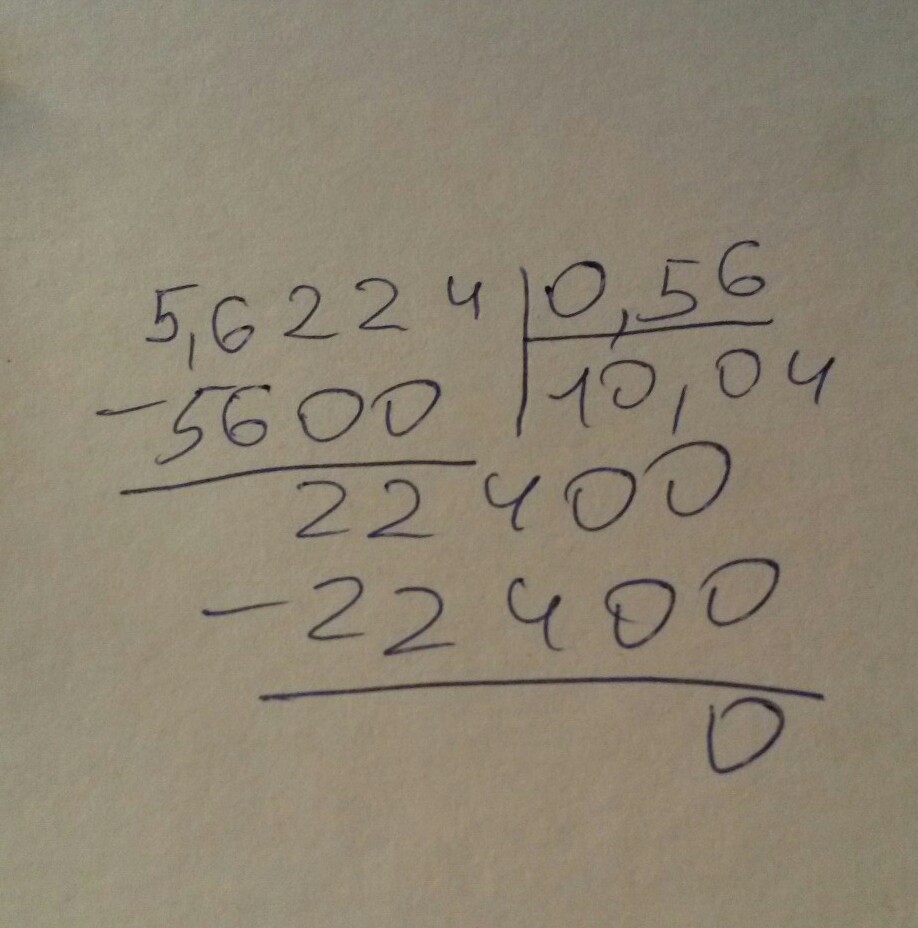 5,6224 0,56
-5600 10,04
22400
-22400
0